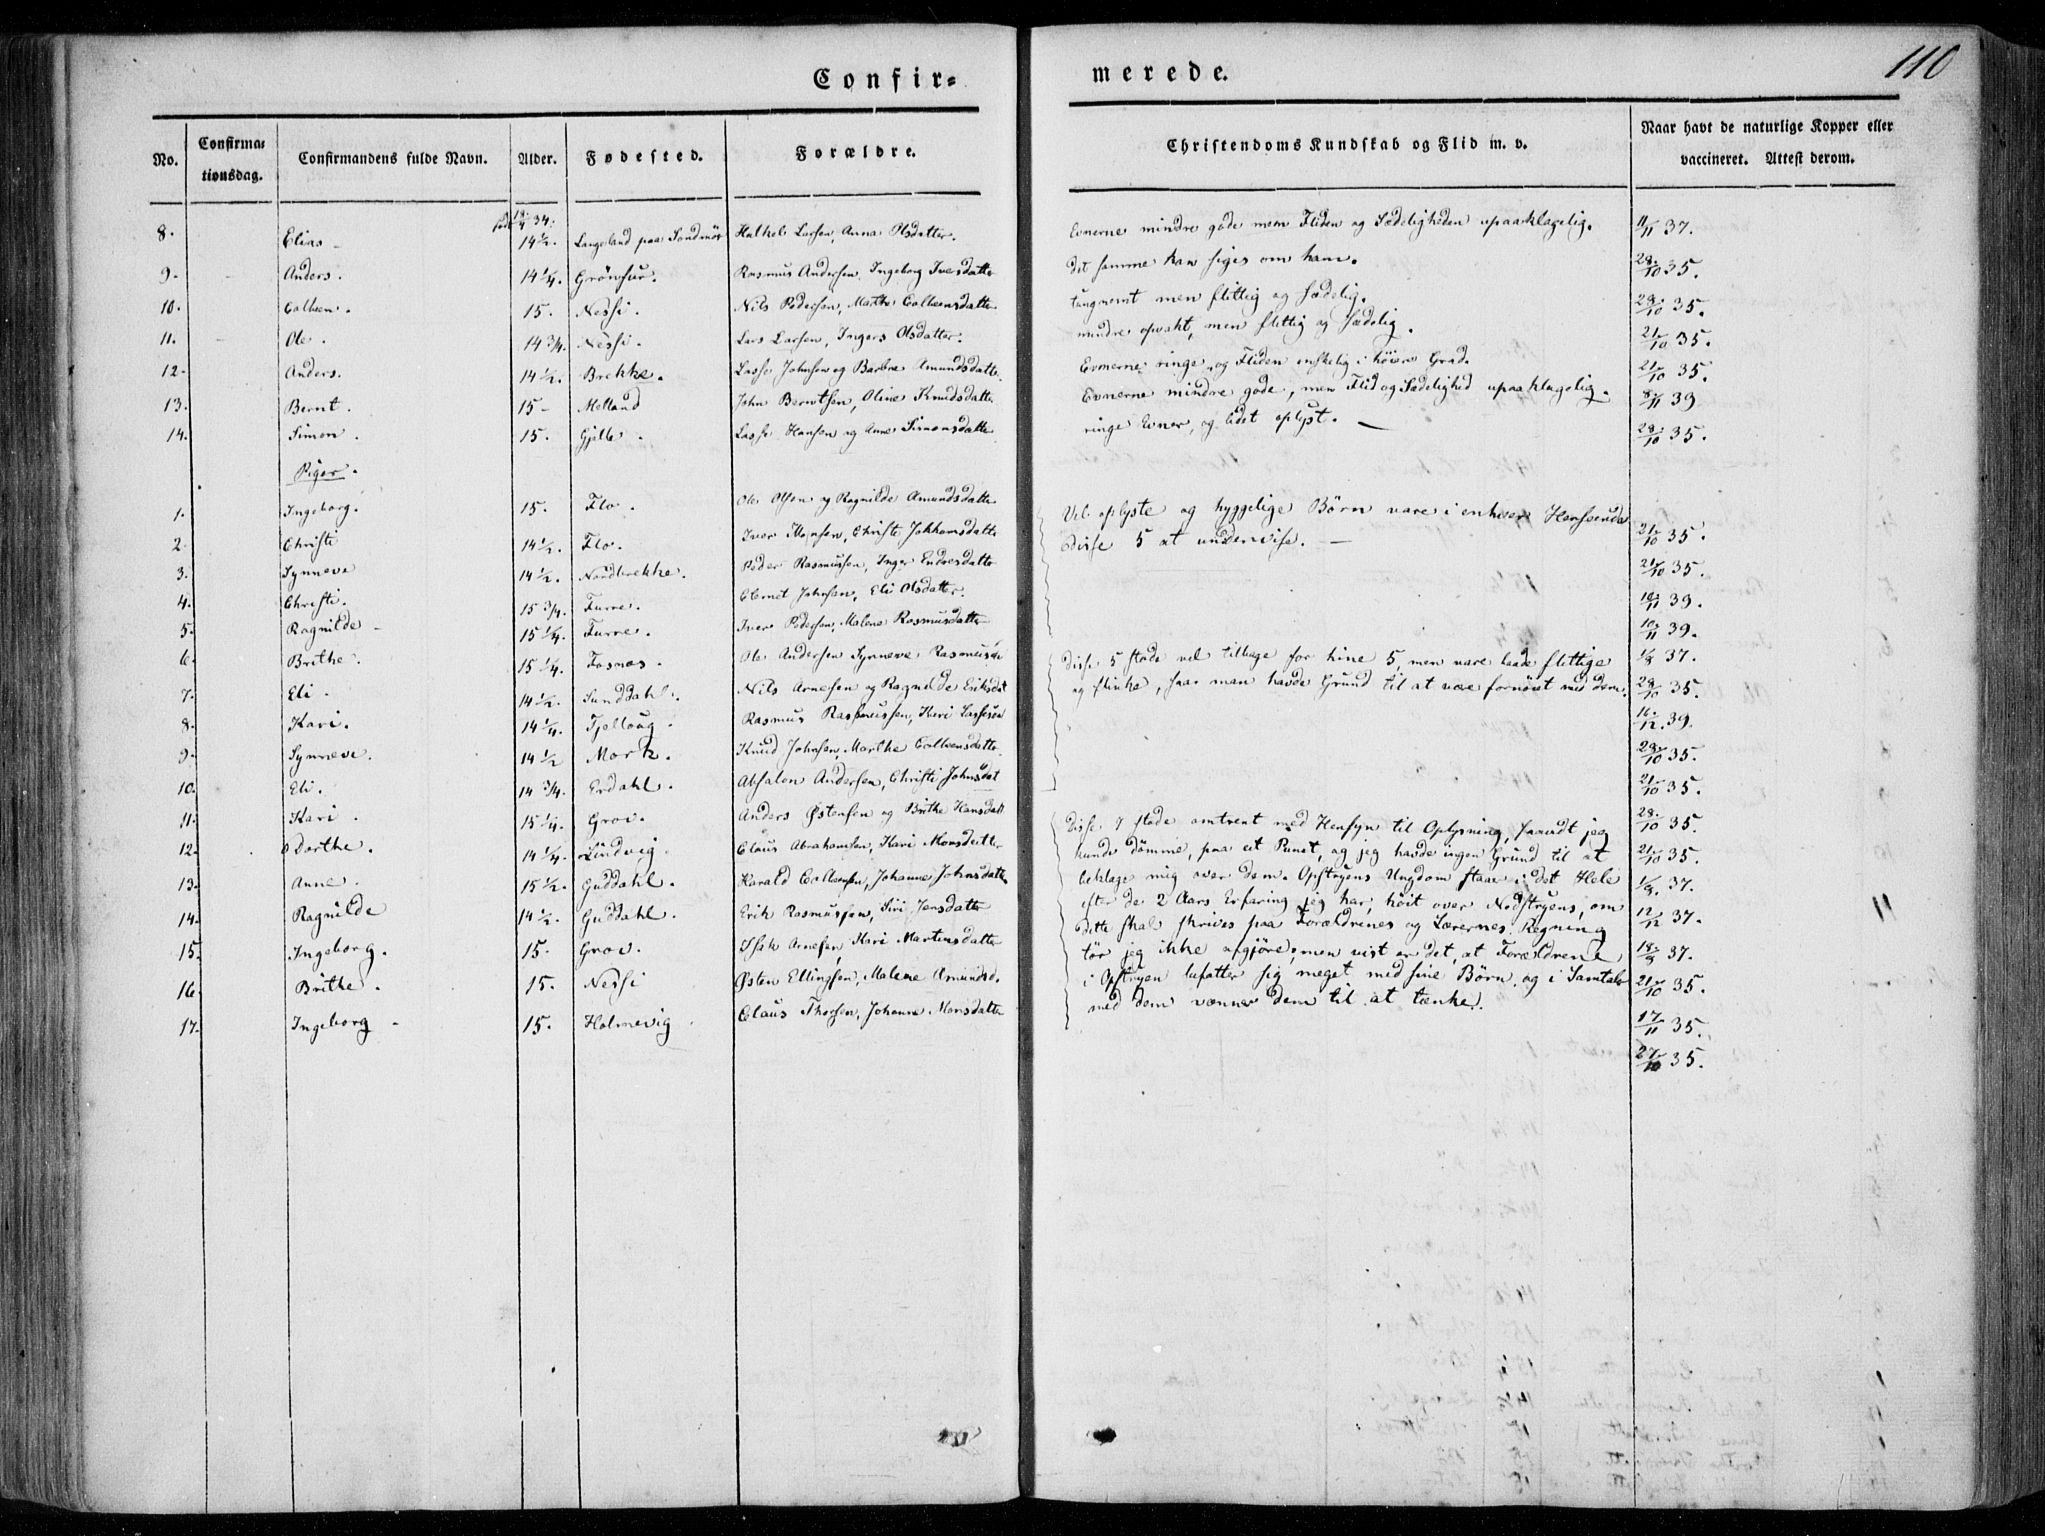 Confir=
merede.
110
No.
Confirma=
tionsdag.
Confirmandens fulde Navn.
Alder.
Fødested.
Forældre.
Christendoms Kundskab og Flid m. v.
Naar havt de naturlige Kopper eller
vaccineret. Attest derom.
8. Elias 14 1/2. Langeland paa Søndmør Larsen, Anna Olsdatter. Evnerne mindre gode men Fliden og Sædeligheden upaaklagelig. 11/11 37.
9. Anders. 14 1/4. Rasmus Andersen, Ingeborg Iversdatter det samme kan siges om ham. 28/10 35.
10. Colbeen. 15. Nessi. Nils Pedersen, Marthe Colbeensdatter tungnemt men flittig og sædelig. 28/10 35.
11. Ole. 14 3/4. Nessi. Lars Larsen, Ingers Olsdatter. mindre opvakt, men flittig og sædelig. 21/10 35.
12. Anders. 14 1/2. Brekke. Lasse Johnsen og Barbre Amundsdatter. Evnerne ringe, og Fliden enskelig i høiere Grad. 21/10 35.
13. Bernt. 15 Melland John Berntsen, Oline Knudsdatter Evnerne mindre gode, men Flid og Sædelighed upaaklagelig. 8/11 39
14. Simen. 15. Gjelle. Lasse Hansen og Anne Simonsdatter ringe Evner, og lidet oplyst. 28/10 35.
Piger.
1. Ingeborg. 15. Flo. Ole Olsen og Ragnilde Amundsdatter
2. Christi 14 1/2. Flo. Iver Monsen, Christi Jokkumsdatter
3. Synneve 14 1/2. Nordbrekke. Peder Rasmussen, Inger Endresdatter
4. Christi. 15 3/4. Furre. Clemet Johnsen, Eli Olsdatter.
5. Ragnilde 15 1/4. Furre. Iver Pedersen, Malene Rasmusdatter
6. Brithe. 15 1/4. Fosnes. Ole Andersen Synneve
7. Eli. 14 1/2. Sunddahl. Nils Arnesen og Ragnilde Eriksdat
8. Kari. 14 1/4. Tjelloug. Rasmus Rasmussen, Kari
9. Synneve. 14 1/2 Mork. Knud Johnsen, Marthe Colbeensdatter
10. Eli. 14 3/4. Erdahl. Absalon Andersen, Christi Johnsdat
11. Kari. 15 1/4. Grov. Anders Østensen og Brithe Hansdatt
12. Dorthe. 14 1/4. Lindvig. Claus Abrahamsen, Kari Monsdatter
13. Anne. 15 1/2. Guddahl. Harald Colbeensen, Johanne Johnsdatter
14. Ragnilde 14 1/2. Guddahl. Erik Rasmussen, Siri Jensdatter
15. Ingeborg. 15. Grov. Isak Arnesen, Kari Martensdatter
16. Brithe. 15. Nessi Østen Ellingsen, Malene Amundsd.
17. Ingeborg 15. Holmevig Claus Thorsen, Johanne Monsdatter
Vel oplyste og hyggelige Børn vare i enhver Henseende
disse 5 at undervise.
disse 5 stode vel tilbage for hine 5, men vare baade flittige
og flinke, saa man havde Grund til at være fornøiet med dem.
disse 7 stode omtrent med Hensyn til Oplysning, saavidt jeg
kunde dømme, paa eet Punct, og jeg havde ingen Grund til at
beklage mig over dem. Opstryens Ungdom staar i det Hele
efter de 2 Aars Erfaring jeg har, høit over Nedstryens, om
dette skal skrives paa Forældrenes og Lærernes Regning
tør jeg ikke afgjøre, men vist er det, at Forældrene
i Opstryen befatter sig meget med sine Børn, og i Samtale
med dem vænner dem til at tænke.
21/10 35.
21/10 35.
18/11 39.
10/11 39.
1/9 37.
28/10 35.
16/12 39.
28/10 35.
21/10 35.
28/10 35.
21/10 35.
1/9 37.
12/12 37.
18/9 37.
21/10 35.
17/11 35.
27/10 35.